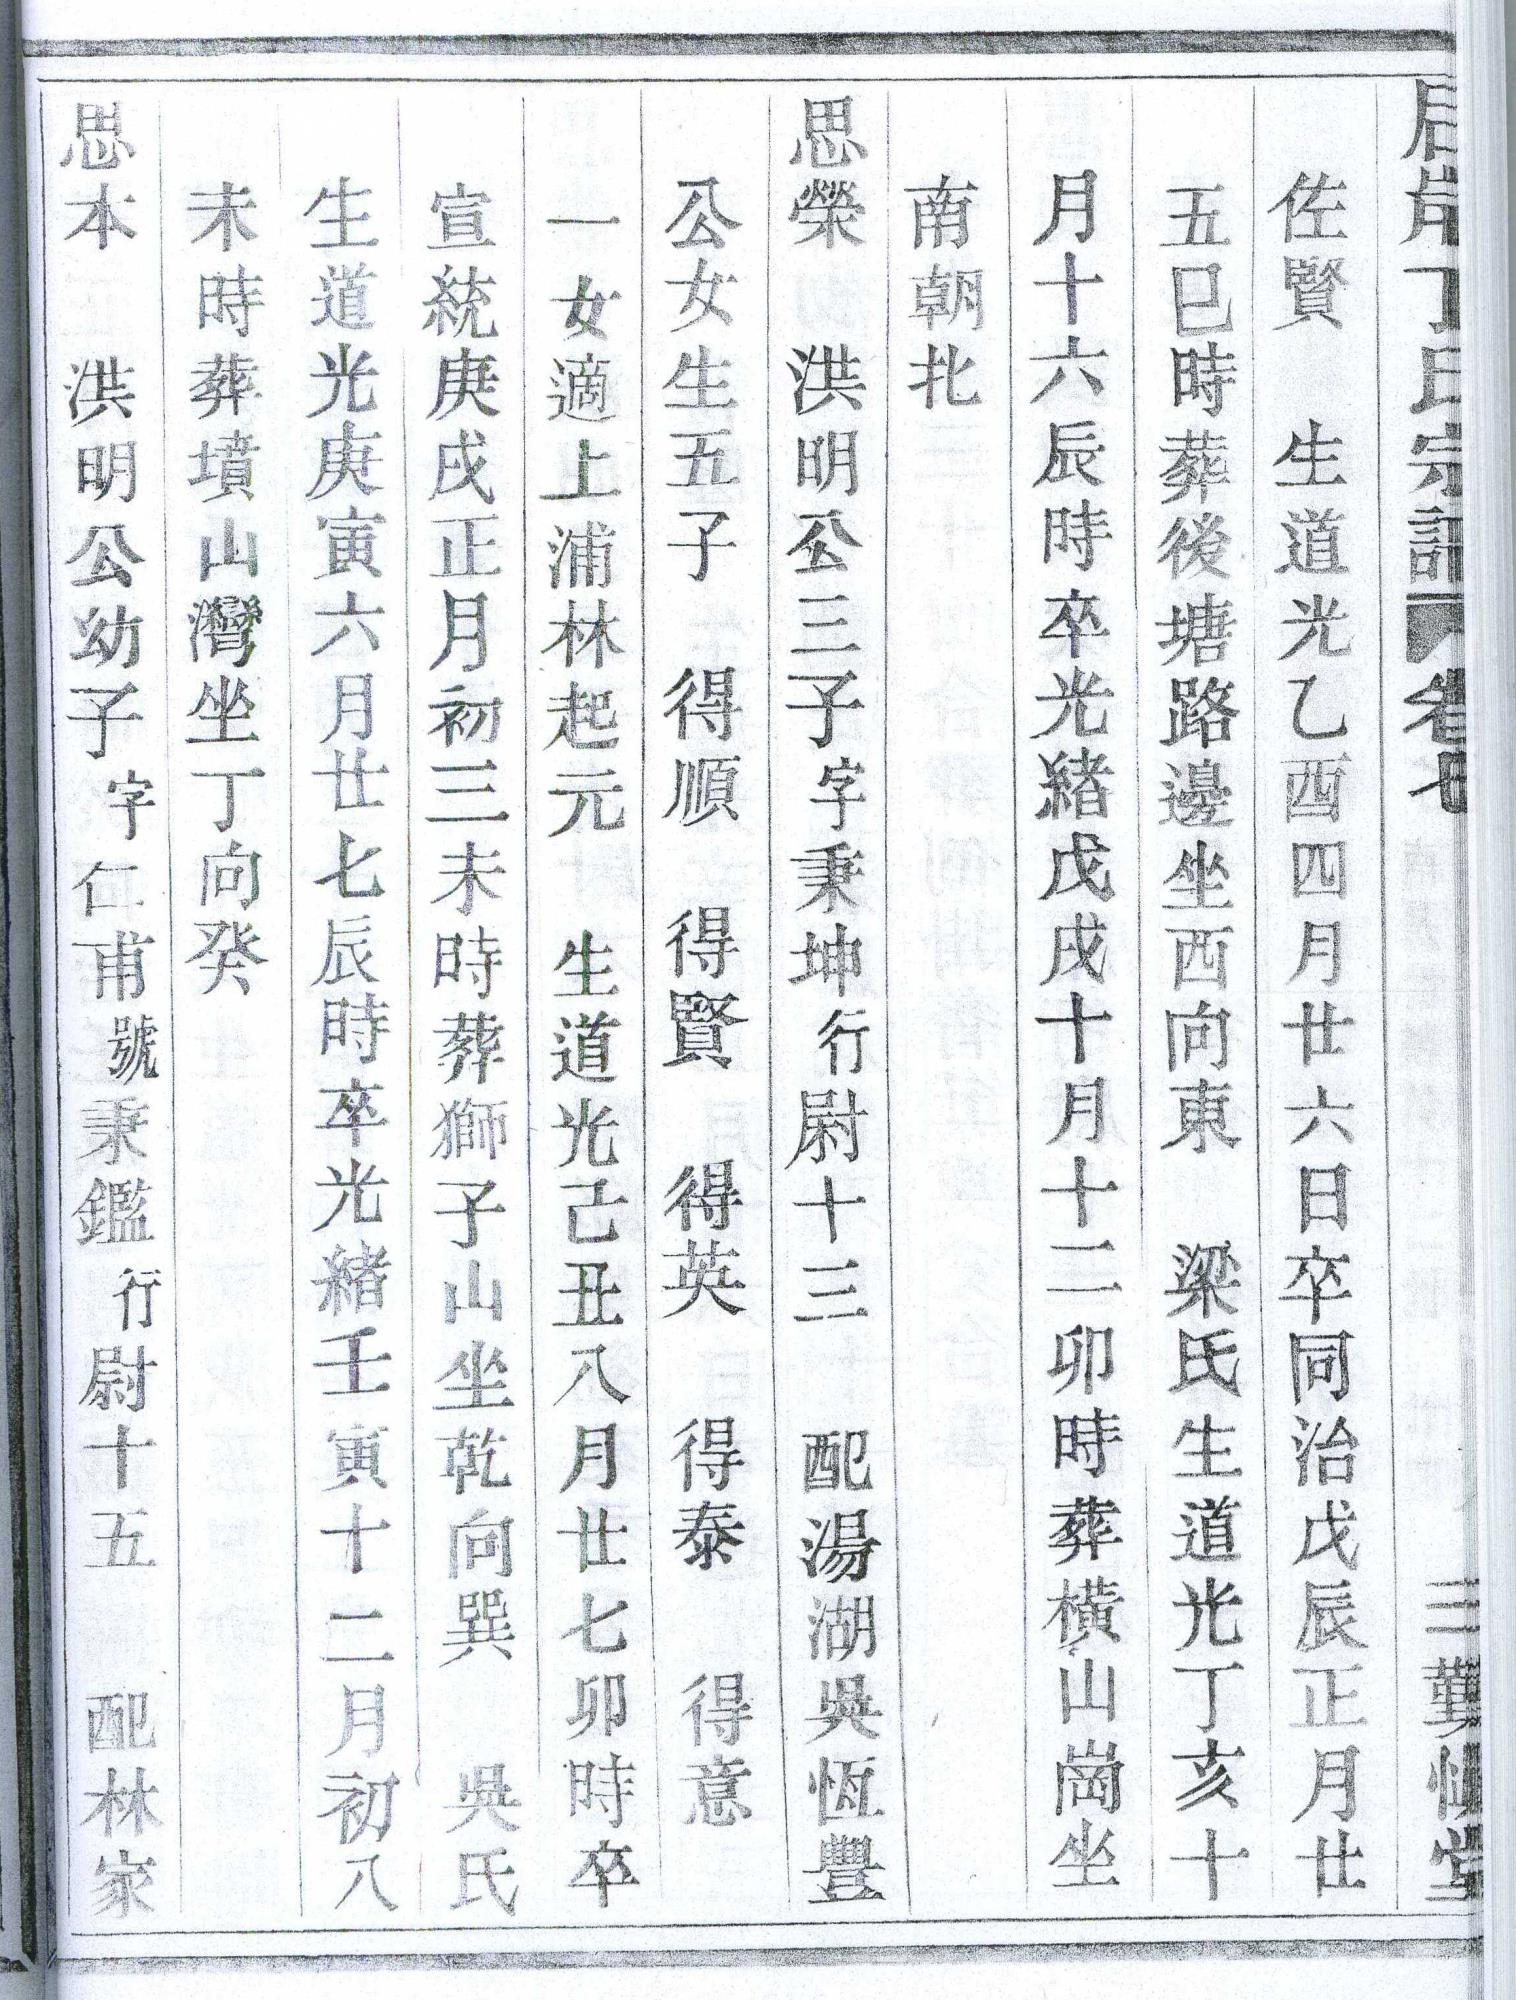 丁氏宗譜 卷七 三 勤慎堂
佐賢 生道光乙酉四月廿六日卒同治戊辰正月廿
五巳時葬後塘路邊坐西向東 梁氏生道光丁亥十
月十六辰時卒光緒戊戌十月十二卯時葬橫山崗坐
南朝北
思榮 洪明公三子字秉坤行尉十三 配湯湖吳恆豐
公女生五子 得順 得賢 得英 得泰 得意
一女適上浦林起元 生道光己丑八月廿七卯時卒
宣統庚戌正月初三未時葬獅子山坐乾向巽 吳氏
生道光庚寅六月廿七辰時卒光緒壬寅十二月初八
未時葬墳山灣坐丁向癸
思本 洪明公幼子字仁甫號秉鑑行尉十五 配林家